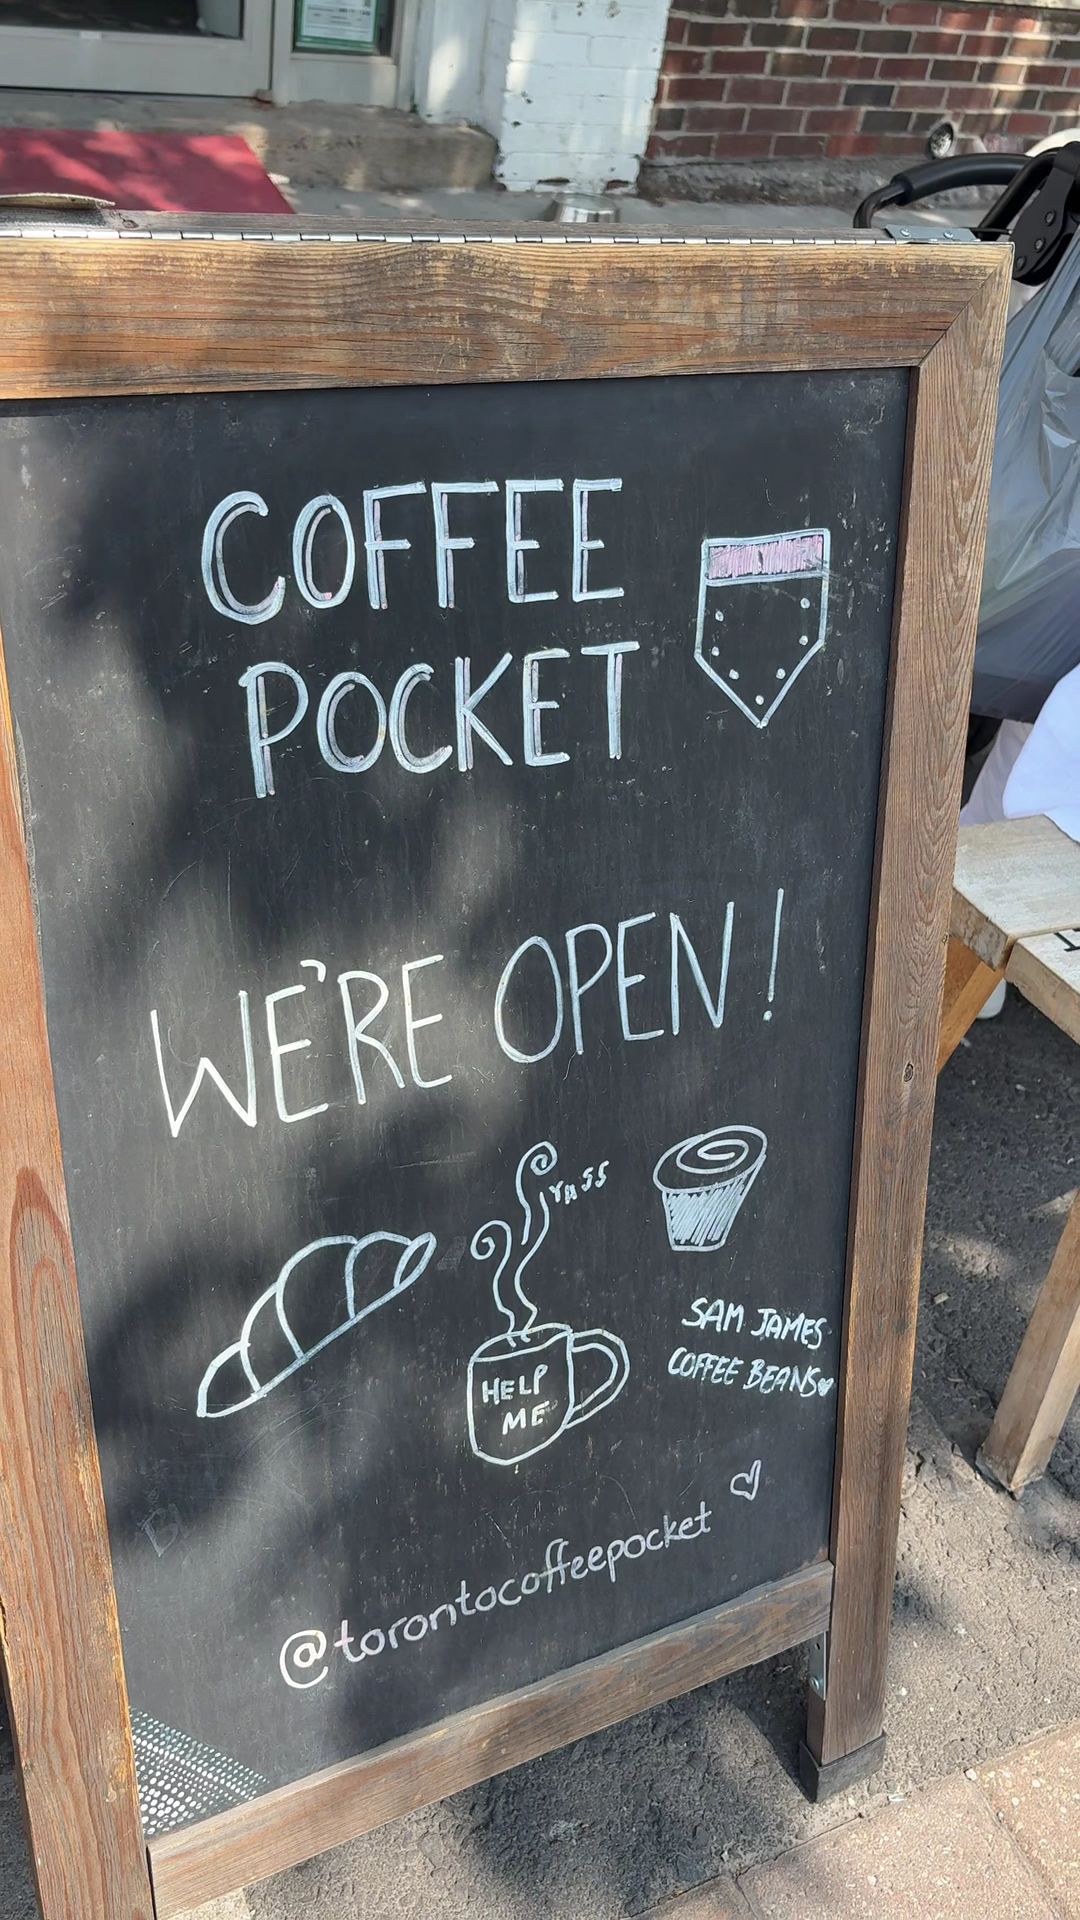 COFFEE
POCKET
WE'RE OPEN!
YASS
HELP
ME
SAM JAMES
COFFEE BEANS
@torontocoffeepocket